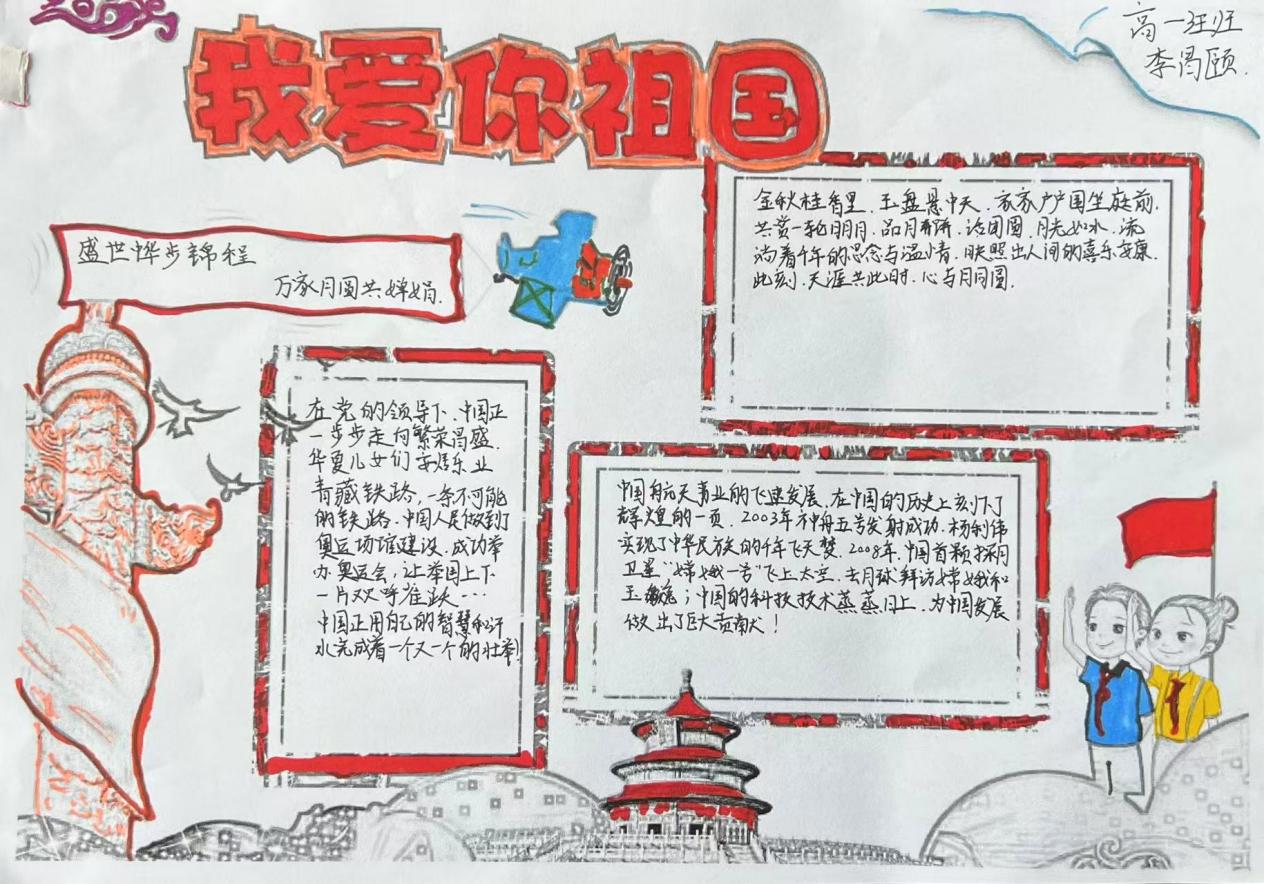 我爱你祖国
高一班
李 颐.
盛世 步锦程
万家月圆共婵娟.
金秋桂香里.玉盘悬中天.家家户户围坐庭前.
共赏一轮明月.品月 话团圆.月光如水.流
淌着千年的思念与温情.映照出人间的喜乐安康.
此刻.天涯共此时.心与月同圆.
在党的领导下、中国正
一步步走向繁荣昌盛.
华夏儿女们安居乐业
青藏铁路,一条不可能
的铁路.中国人民做到了
奥运场馆建设.成功举
办奥运会,让举国上下
一片欢呼雀跃…
中国正用自己的智慧和汗
水完成着一个又一个的壮举!
中国航天事业的飞速发展.在中国的历史上刻下了
辉煌的一页.2003年神舟五号发射成功.杨利伟
实现了中华民族的千年飞天梦.2008年.中国首颗探月
卫星“嫦娥一号”飞上太空.去月球拜访嫦娥和
玉兔;中国的科技技术蒸蒸日上.为中国发展
做出了巨大贡献!